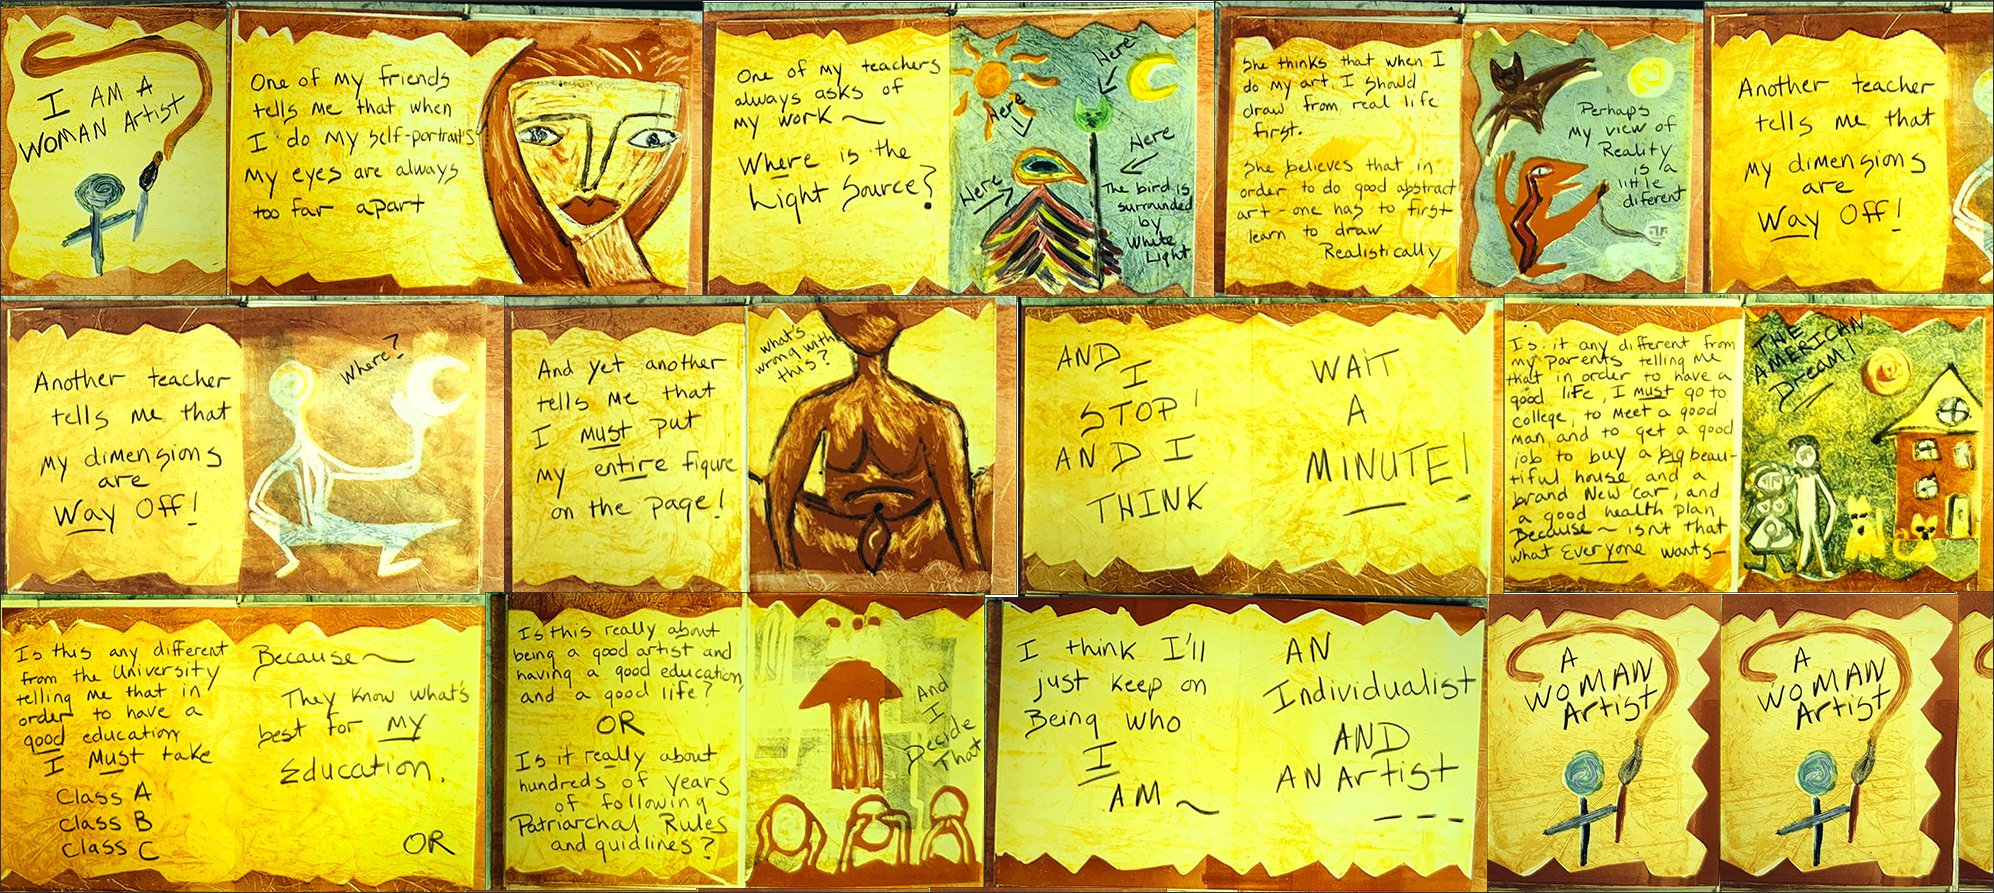 I AM A
WOMAN Artist
One of my friends
tells me that when
I do my self-portraits
my eyes are always
too far apart
One of my teachers
always asks of
my work ~
Where is the
Light Source?
Here
Here
Here
Here
The bird is
surrounded
by
White
Light
She thinks that when I
do my art, I should
draw from real life
first.
She believes that in
order to do good abstract
art - one has to first
learn to draw
Realistically
Perhaps
My view of
Reality
is a
little
diferent
Another teacher
tells me that
my dimensions
are
Way Off!
Another teacher
tells me that
my dimensions
are
Way Off!
Where?
And yet another
tells me that
I must put
my entire figure
on the page!
what's
wrong with
this?
AND
I
STOP!
AND I
THINK
WAIT
A
MINUTE!
Is it any different from
my parents telling me
that in order to have a
good life, I must go to
college, to meet a good
man, and to get a good
job to buy a big beau-
tiful house and a
brand New car, and
a good health plan
Because ~ isn't that
what Everyone wants -
THE
AMERICAN
Dream!
Is this any different
from the University
telling me that in
order to have a
good education
I Must take
Class A
Class B
Class C
Because ~
They know what's
best for my
Education.
OR
Is this really about
being a good artist and
having a good education,
and a good life?
OR
Is it really about
hundreds of years
of following
Patriarchal Rules
and quidlines?
And
I
Decide
That
I think I'll
just keep on
Being who
I
AM ~
AN
Individualist
AND
AN Artist
---
A
WOMAN
Artist
A
WOMAN
Artist